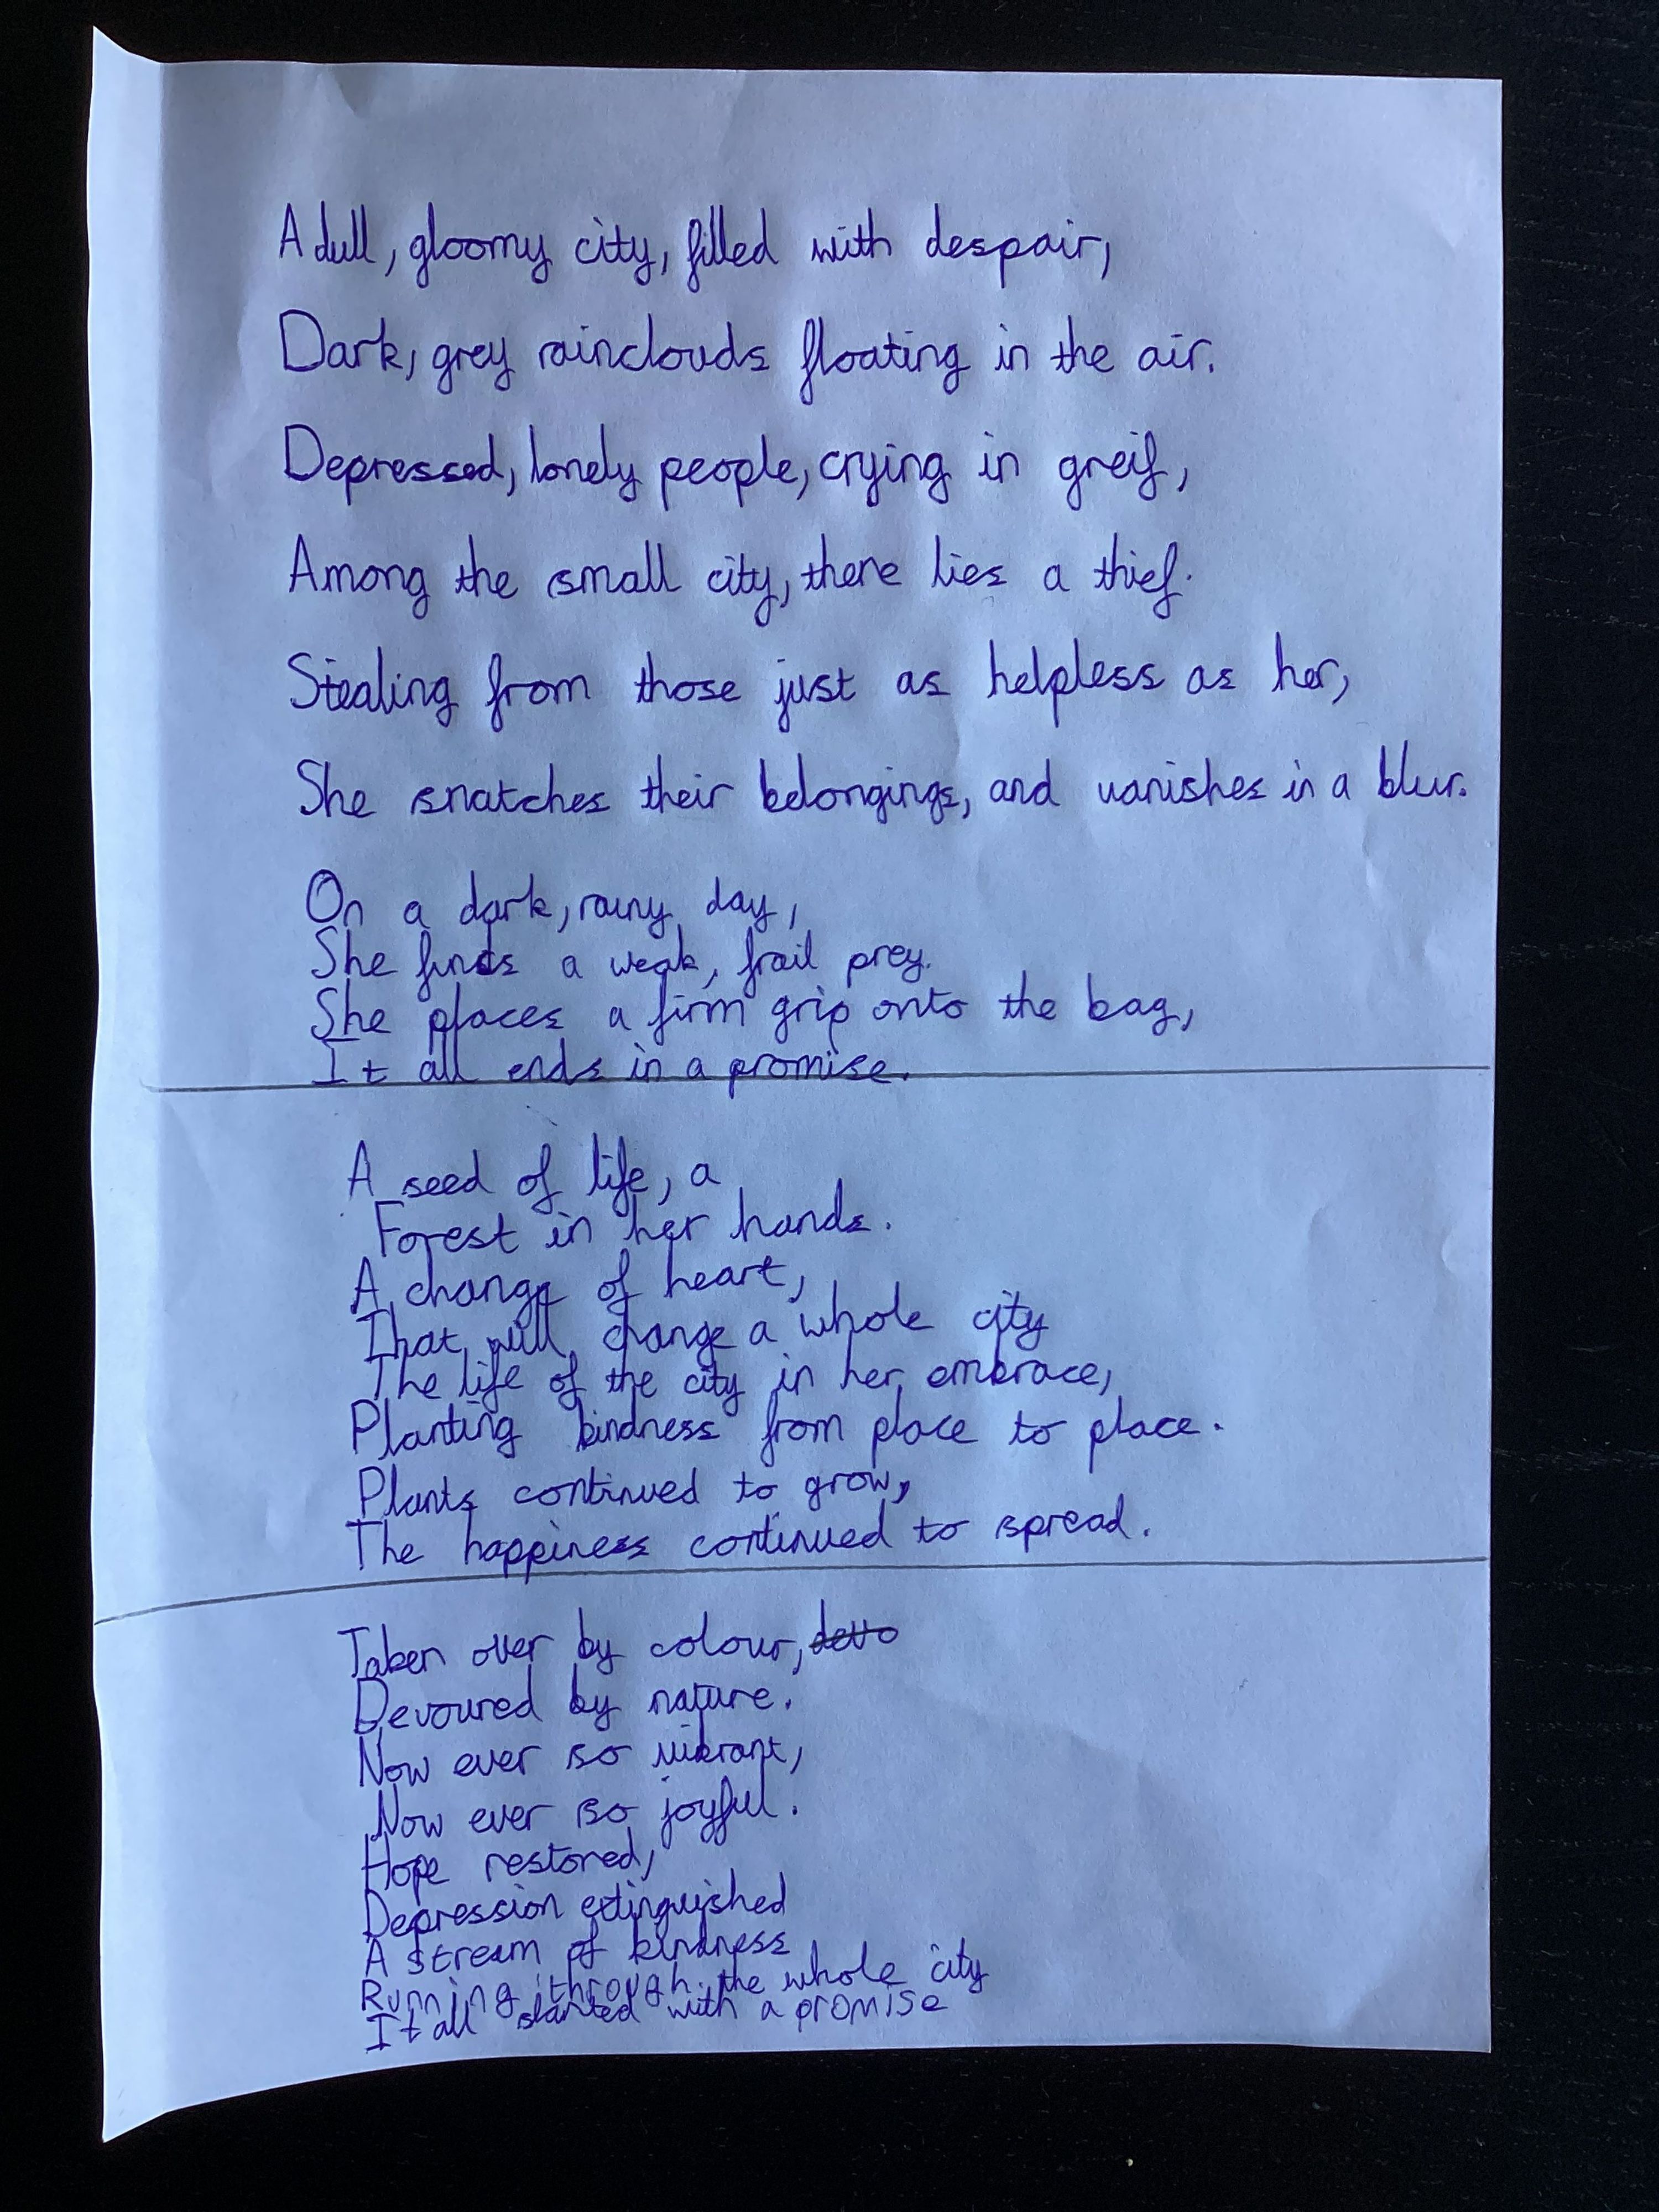 A dull, gloomy city, filled with despair,
Dark, grey rainclouds floating in the air.
Depressed, lonely people, crying in greif,
Among the small city, there lies a thief.
Stealing from those just as helpless as her,
She snatches their belongings, and vanishes in a blur.
On a dark, rainy day,
She finds a weak, frail prey.
She places a firm grip onto the bag,
It all ends in a promise.
A seed of life, a
Forest in her hands.
A change of heart,
That will change a whole city
The life of the city in her embrace,
Planting kindness from place to place.
Plants continued to grow,
The happiness continued to spread.
Taken over by colour, devo
Devoured by nature.
Now ever so vibrant,
Now ever so joyful.
Hope restored,
Depression extinguished
A stream of kindness
Running through the whole city
It all started with a promise